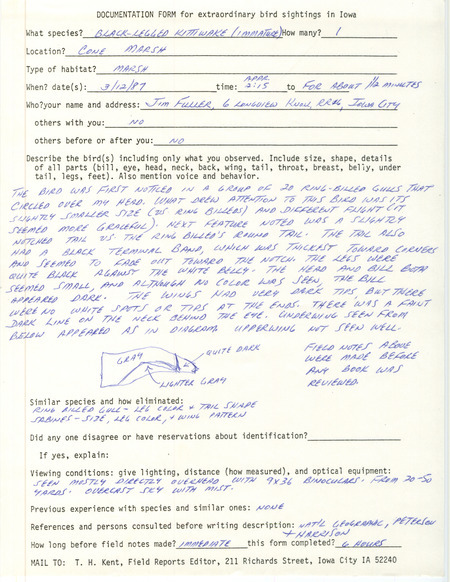 DOCUMENTATION FORM for extraordinary bird sightings in Iowa
What species? BLACK-LEGGED KITTIWAKE (IMMATURE) How many? 1
Location? CONE MARSH
Type of habitat? MARSH
When? date(s): 3/12/87 time: APPR 2:15 to FOR ABOUT 1 1/2 MINUTES
Who? your name and address: JIM FULLER, 6 LONGVIEW KNOLL, RR#6, IOWA CITY
others with you: NO
others before or after you: NO
Describe the bird(s) including only what you observed. Include size, shape, details
of all parts (bill, eye, head, neck, back, wing, tail, throat, breast, belly, under
tail, legs, feet). Also mention voice and behavior.
THE BIRD WAS FIRST NOTICED IN A GROUP OF 20 RING-BILLED GULLS THAT
CIRCLED OVER MY HEAD. WHAT DREW ATTENTION TO THIS BIRD WAS ITS
SLIGHTLY SMALLER SIZE (VS RING BILLEDS) AND DIFFERENT FLIGHT (IT
SEEMED MORE GRACEFUL). NEXT FEATURE NOTED WAS A SLIGHTLY
NOTCHED TAIL VS. THE RING BILLED'S ROUND TAIL. THE TAIL ALSO
HAD A BLACK TERMINAL BAND, WHICH WAS THICKEST TOWARD CORNERS
AND SEEMED TO FADE OUT TOWARD THE NOTCH. THE LEGS WERE
QUITE BLACK AGAINST THE WHITE BELLY. THE HEAD AND BILL BOTH
SEEMED SMALL, AND ALTHOUGH NO COLOR WAS SEEN, THE BILL
APPEARED DARK. THE WINGS HAD VERY DARK TIPS, BUT THERE
WERE NO WHITE SPOTS OR TIPS AT THE ENDS. THERE WAS A FAINT
DARK LINE ON THE NECK BEHIND THE EYE. UNDERWING SEEN FROM
BELOW APPEARED AS IN DIAGRAM. UPPERWING NOT SEEN WELL.
GRAY QUITE DARK
LIGHTER GRAY
FIELD NOTES ABOVE
WERE MADE BEFORE
ANY BOOK WAS
REVIEWED.
Similar species and how eliminated:
RING BILLED GULL - LEG COLOR + TAIL SHAPE
SABINES - SIZE, LEG COLOR, + WING PATTERN
Did any one disagree or have reservations about identification?
If yes, explain:
Viewing conditions: give lighting, distance (how measured), and optical equipment:
SEEN MOSTLY DIRECTLY OVERHEAD WITH 9X36 BINOCULARS. FROM 20-50
YARDS. OVERCAST SKY WITH MIST.
Previous experience with species and similar ones: NONE
References and persons consulted before writing description: NAT'L GEOGRAPHIC, PETERSON
+ HARRISON
How long before field notes made? IMMEDIATE this form completed? 6 HOURS
MAIL TO: T. H. Kent, Field Reports Editor, 211 Richards Street, Iowa City IA 52240